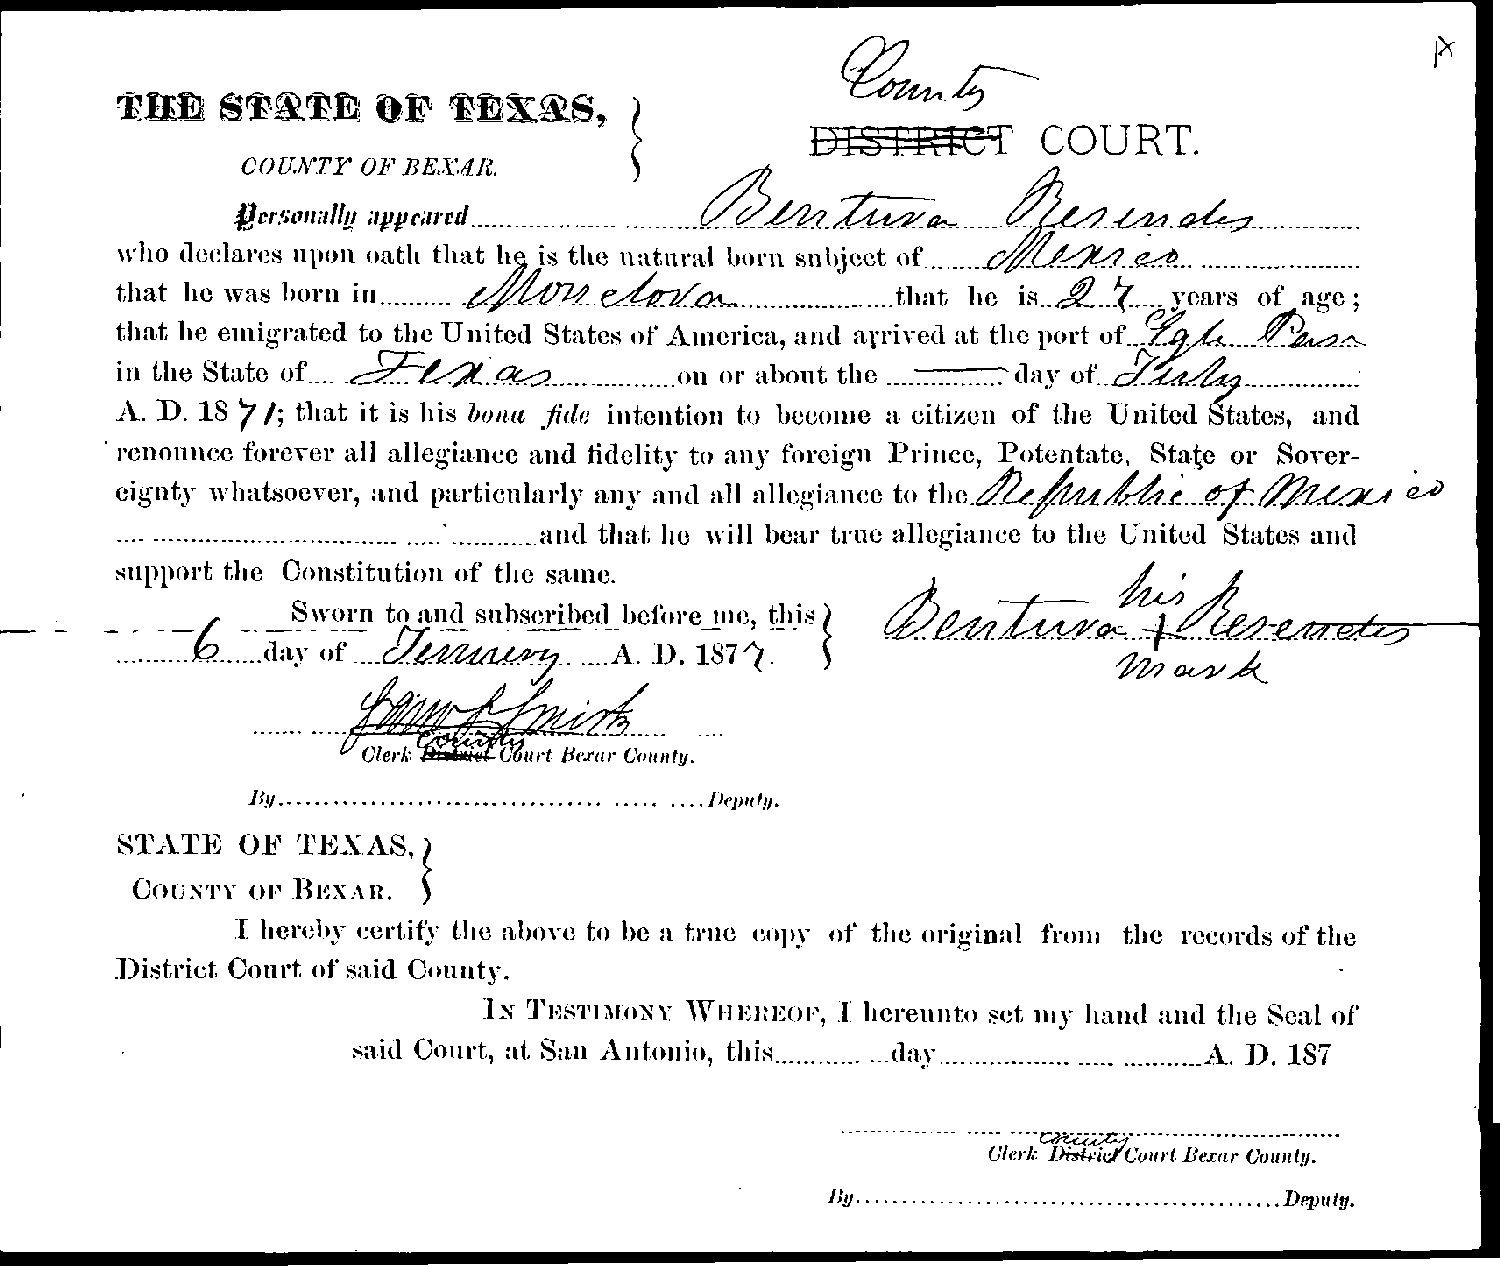 County
THE STATE OF TEXAS,
DISTRICT COURT.
COUNTY OF BEXAR.
Personally appeared Bentura Resendes
who declares upon oath that he is the natural born subject of Mexico
that he was born in Monclova that he is 27 years of age;
that he emigrated to the United States of America, and arrived at the port of Egle Pass
in the State of Texas on or about the — day of July
A. D. 1871; that it is his bona fide intention to become a citizen of the United States, and
renounce forever all allegiance and fidelity to any foreign Prince, Potentate, State or Sover-
eignty whatsoever, and particularly any and all allegiance to the Republic of Mexico
and that he will bear true allegiance to the United States and
support the Constitution of the same.
Sworn to and subscribed before me, this
6 day of A. D. 1877.
his
Bentura + Resendes
mark
Sam S Smith
County
Clerk District Court Bexar County.
By Deputy.
STATE OF TEXAS,
COUNTY OF BEXAR.
I hereby certify the above to be a true copy of the original from the records of the
District Court of said County.
IN TESTIMONY WHEREOF, I hereunto set my hand and the Seal of
said Court, at San Antonio, this day A. D. 187
County
Clerk District Court Bexar County.
By Deputy.